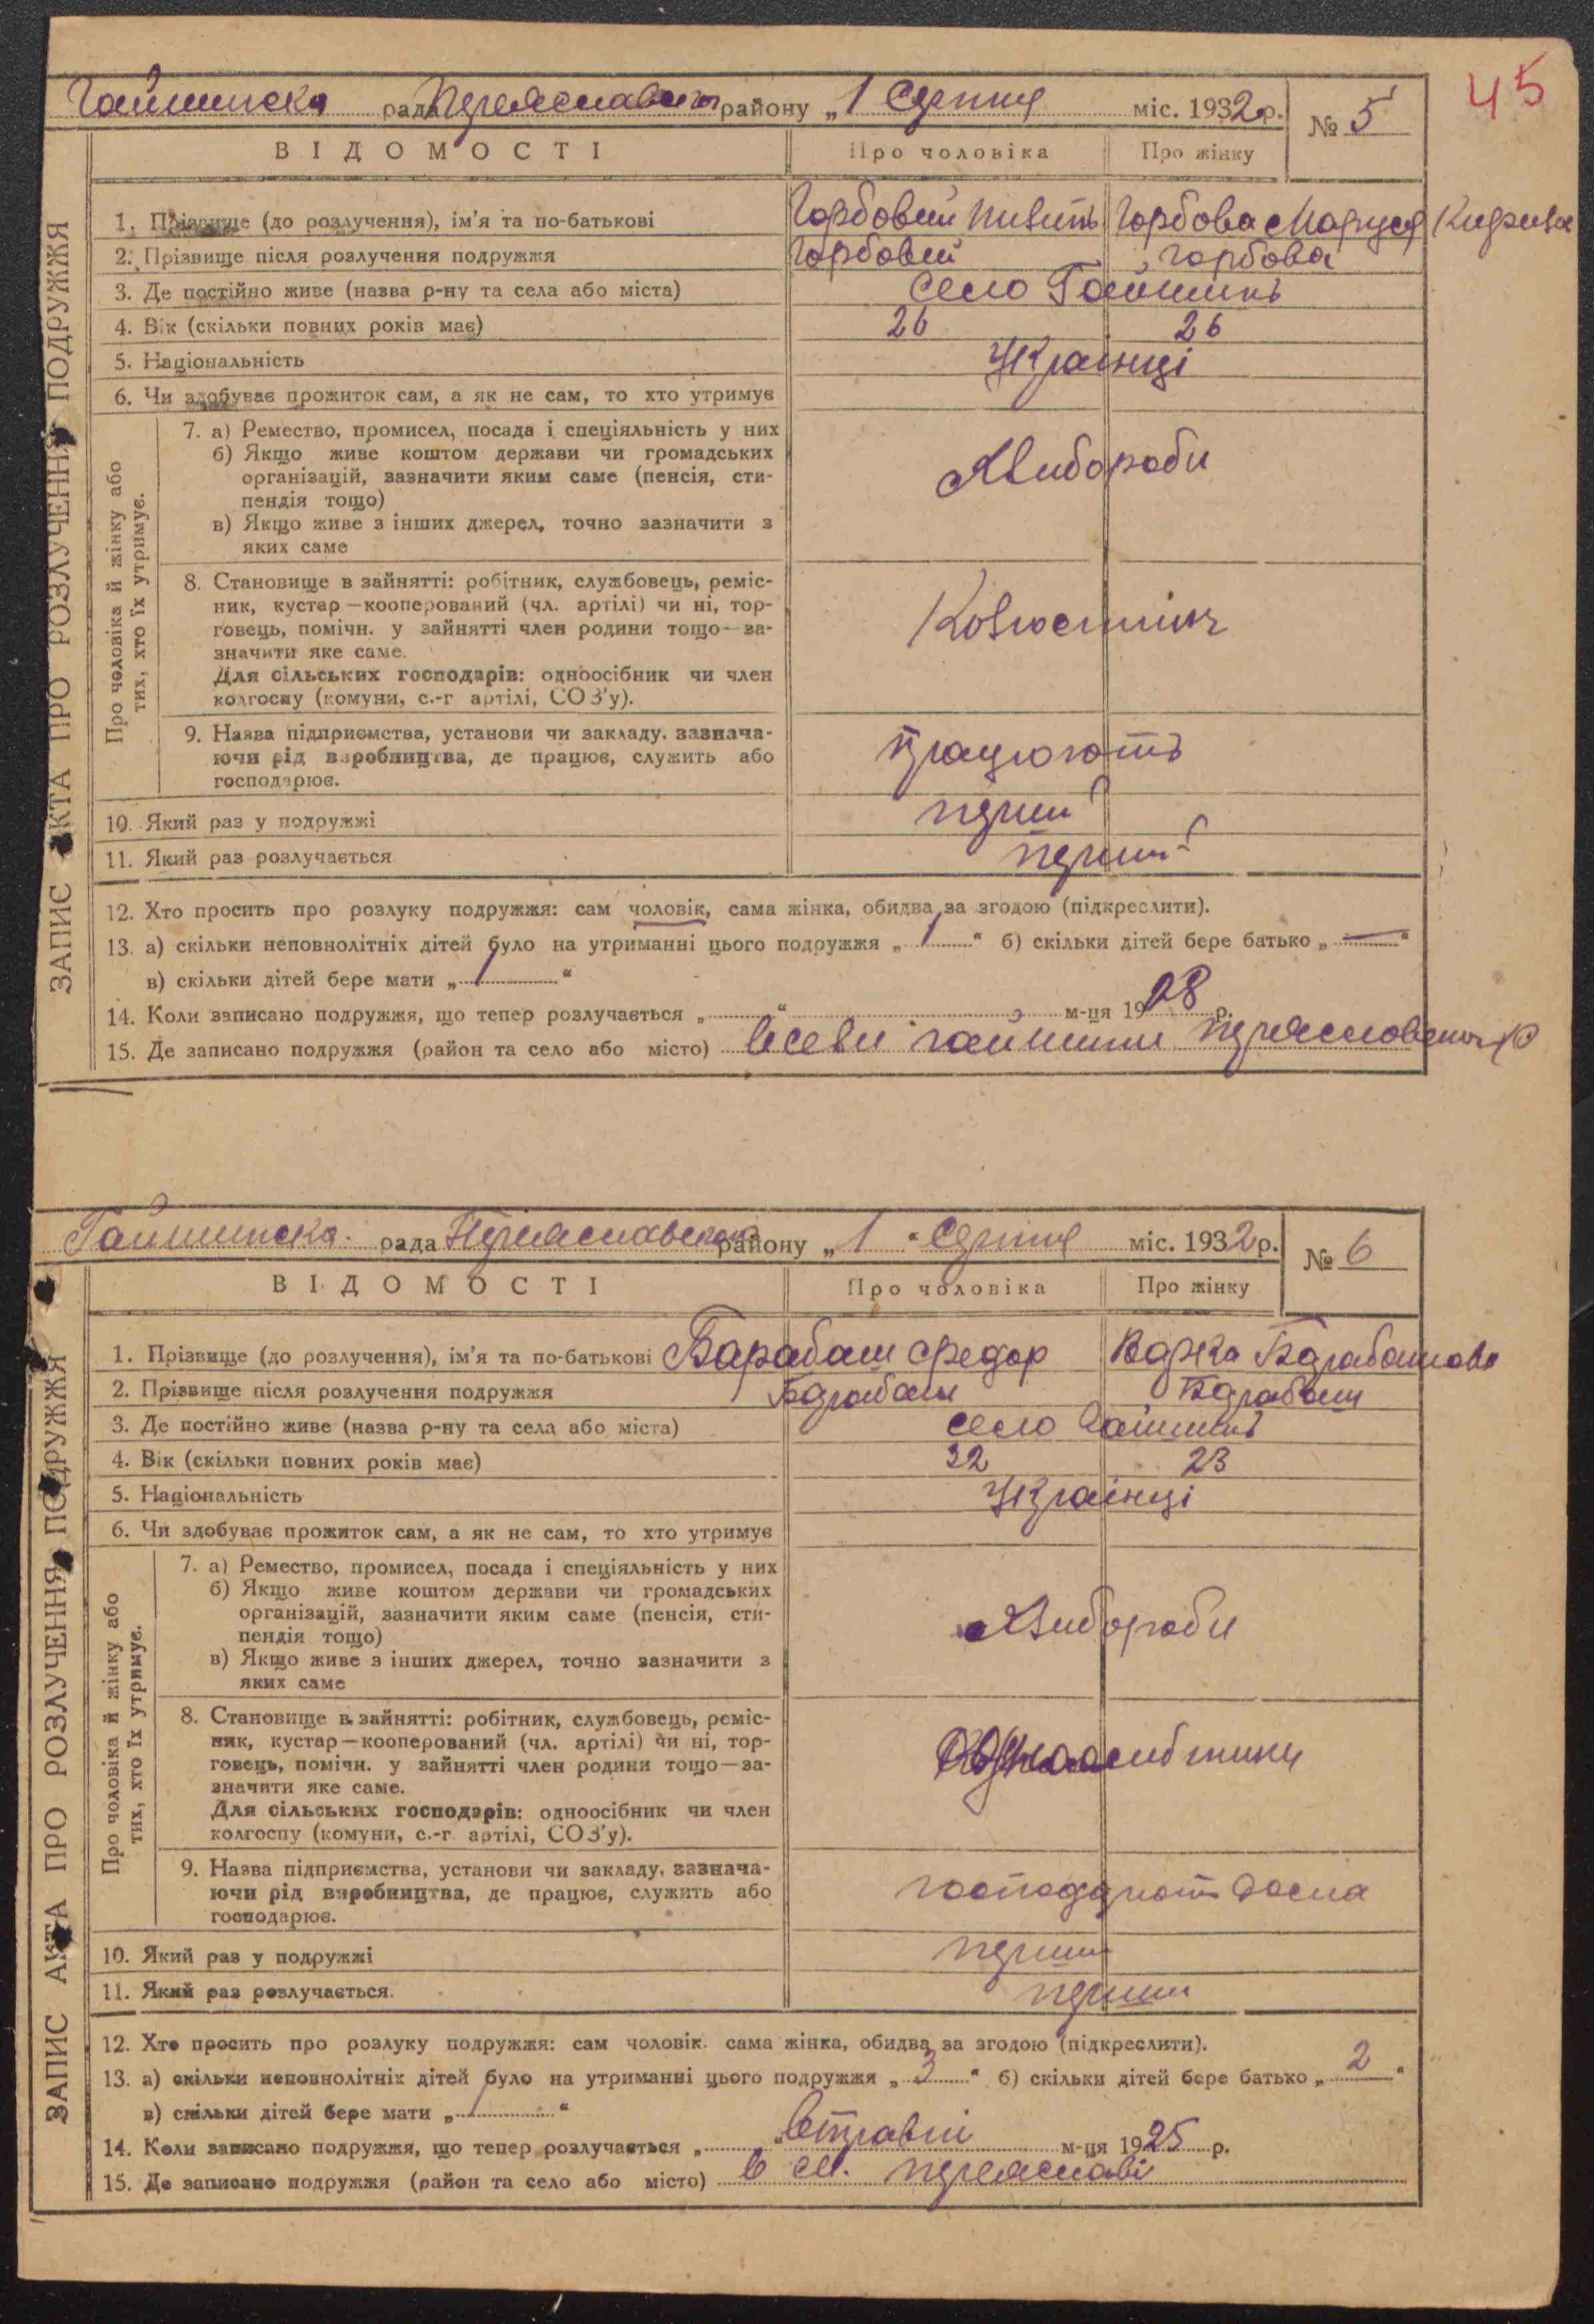 45
Гайшинска рада Переяславсько району „ 1 Серпня міс. 1932 р. № 5
ВІДОМОСТІ Про чоловіка Про жінку
ЗАПИС АКТА ПРО РОЗЛУЧЕННЯ ПОДРУЖЖЯ
1. Прізвище (до розлучення), ім'я та по-батькові Горбовий Горбова Маруся
2. Прізвище після розлучення подружжя Горбовий Горбова
3. Де постійно живе (назва р-ну та села або міста) село Гайшинь
4. Вік (скільки повних років має) 26 26
5. Національність Українці
6. Чи здобуває прожиток сам, а як не сам, то хто утримує
Про чоловіка й жінку або
тих, хто їх утримує.
7. а) Ремество, промисел, посада і спеціяльність у них
б) Якщо живе коштом держави чи громадських
організацій, зазначити яким саме (пенсія, сти-
пендія тощо)
в) Якщо живе з інших джерел, точно зазначити з
яких саме
Хлибороби
8. Становище в зайнятті: робітник, службовець, реміс-
ник, кустар—кооперований (чл. артілі) чи ні, тор-
говець, помічн. у зайнятті член родини тощо—за-
значити яке саме.
Для сільських господарів: одноосібник чи член
колгоспу (комуни, с.-г артілі, СОЗ'у).
9. Назва підприємства, установи чи закладу, зазнача-
ючи рід виробництва, де працює, служить або
господарює.
працюють
10. Який раз у подружжі перший
11. Який раз розлучається перший
12. Хто просить про розлуку подружжя: сам чоловік, сама жінка, обидва за згодою (підкреслити).
13. а) скільки неповнолітніх дітей було на утриманні цього подружжя „ 1 “ б) скільки дітей бере батько „ — “
в) скільки дітей бере мати „ 1 “
14. Коли записано подружжя, що тепер розлучається „ “ м-ця 1928 р.
15. Де записано подружжя (район та село або місто) в селі гайшини Переяславськ р
Гайшинска рада Переяславсько району „ 1 “ Серпня міс. 1932 р. № 6
ВІДОМОСТІ Про чоловіка Про жінку
ЗАПИС АКТА ПРО РОЗЛУЧЕННЯ ПОДРУЖЖЯ
1. Прізвище (до розлучення), ім'я та по-батькові Барабаш Федор Варка Барабашова
2. Прізвище після розлучення подружжя Барабаш Барабаш
3. Де постійно живе (назва р-ну та села або міста) село Гайшинь
4. Вік (скільки повних років має) 32 23
5. Національність Українці
6. Чи здобуває прожиток сам, а як не сам, то хто утримує
Про чоловіка й жінку або
тих, хто їх утримує.
7. а) Ремество, промисел, посада і спеціяльність у них
б) Якщо живе коштом держави чи громадських
організацій, зазначити яким саме (пенсія, сти-
пендія тощо)
в) Якщо живе з інших джерел, точно зазначити з
яких саме
Хлибороби
8. Становище в зайнятті: робітник, службовець, реміс-
ник, кустар—кооперований (чл. артілі) чи ні, тор-
говець, помічн. у зайнятті член родини тощо—за-
значити яке саме.
Для сільських господарів: одноосібник чи член
колгоспу (комуни, с.-г. артілі, СОЗ'у).
9. Назва підприємства, установи чи закладу, зазнача-
ючи рід виробництва, де працює, служить або
господарює.
10. Який раз у подружжі перши
11. Який раз розлучається. перши
12. Хто просить про розлуку подружжя: сам чоловік. сама жінка, обидва за згодою (підкреслити).
13. а) скільки неповнолітніх дітей було на утриманні цього подружжя „ 3 “ б) скільки дітей бере батько „ 2 “
в) скільки дітей бере мати „ 1 “
14. Коли записано подружжя, що тепер розлучається „ “ в травні м-ця 1925 р.
15. Де записано подружжя (район та село або місто) в м. переяславі